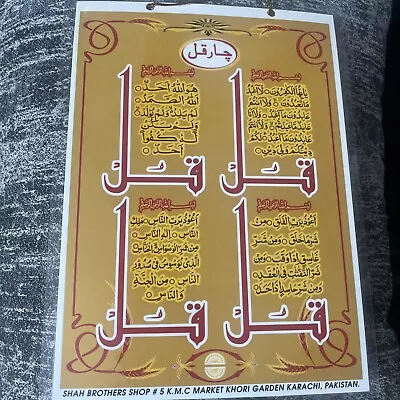 چار قل
بسم الله الرحمن الرحيم
قل
يٰٓاَيُّهَا الْكٰفِرُوْنَ ۝ لَآ اَعْبُدُ
مَا تَعْبُدُوْنَ ۝ وَلَآ اَنْتُمْ
عٰبِدُوْنَ مَآ اَعْبُدُ ۝ وَلَآ اَنَا
عَابِدٌ مَّا عَبَدْتُّمْ ۝ وَلَآ اَنْتُمْ
عٰبِدُوْنَ مَآ اَعْبُدُ ۝ لَكُمْ
دِيْنُكُمْ وَلِيَ دِيْنِ ۝
بسم الله الرحمن الرحيم
قل
هُوَ اللّٰهُ اَحَدٌ ۝
اَللّٰهُ الصَّمَدُ ۝
لَمْ يَلِدْ وَلَمْ يُوْلَدْ ۝
وَلَمْ يَكُنْ لَّهٗ
كُفُوًا
اَحَدٌ ۝
بسم الله الرحمن الرحيم
قل
اَعُوْذُ بِرَبِّ الْفَلَقِ ۝ مِنْ
شَرِّ مَا خَلَقَ ۝ وَمِنْ شَرِّ
غَاسِقٍ اِذَا وَقَبَ ۝ وَمِنْ
شَرِّ النَّفّٰثٰتِ فِي الْعُقَدِ ۝
وَمِنْ شَرِّ حَاسِدٍ اِذَا حَسَدَ ۝
بسم الله الرحمن الرحيم
قل
اَعُوْذُ بِرَبِّ النَّاسِ ۝ مَلِكِ
النَّاسِ ۝ اِلٰهِ النَّاسِ ۝
مِنْ شَرِّ الْوَسْوَاسِ الْخَنَّاسِ ۝
الَّذِيْ يُوَسْوِسُ فِيْ صُدُوْرِ
النَّاسِ ۝ مِنَ الْجِنَّةِ
وَالنَّاسِ ۝
SHAH BROTHERS SHOP # 5 K.M.C MARKET KHORI GARDEN KARACHI, PAKISTAN.